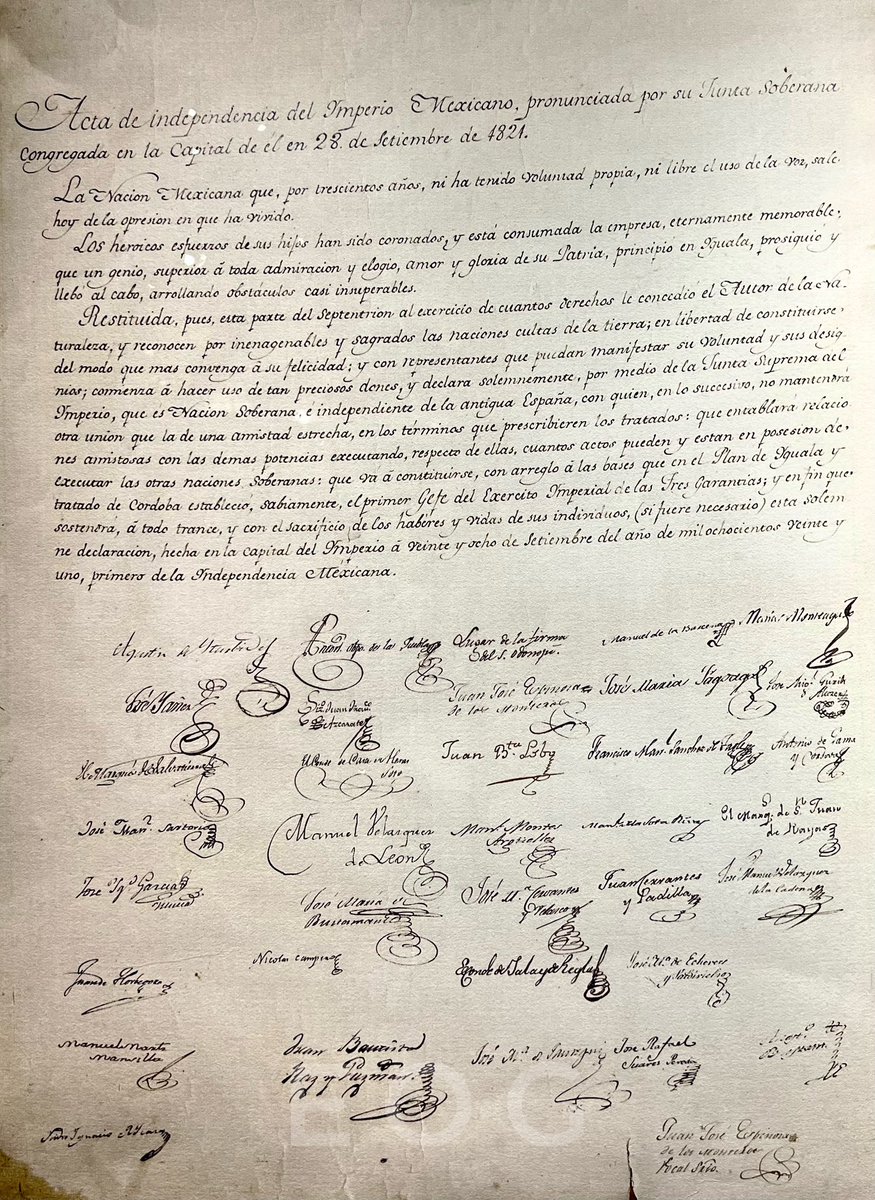 Acta de independencia del Ymperio Mexicano, pronunciada por su Junta Soberana
congregada en la Capital de él en 28. de Setiembre de 1821.
La Nacion Mexicana que, por trescientos años, ni ha tenido voluntad propia, ni libre el uso de la voz, sale
hoy de la opresion en que ha vivido.
Los heroicos esfuerzos de sus hijos han sido coronados, y está consumada la empresa, eternamente memorable,
que un genio, superior á toda admiracion y elogio, amor y gloria de su Patria, principió en Yguala, prosiguió y
llebó al cabo, arrollando obstáculos casi insuperables.
Restituida, pues, esta parte del Septentrion al exercicio de cuantos derechos le concedió el Autor de la Na-
turaleza, y reconocen por inenagenables y sagrados las naciones cultas de la tierra; en libertad de constituirse
del modo que mas convenga á su felicidad; y con representantes que puedan manifestar su voluntad y sus desig
nios; comienza á hacer uso de tan preciosos dones, y declara solemnemente, por medio de la Junta Suprema del
Ymperio, que es Nacion Soberana, e independiente de la antigua España, con quien, en lo succesivo, no mantendrá
otra union que la de una amistad estrecha, en los términos que prescribieren los tratados: que entablará relacio
nes amistosas con las demas potencias executando, respecto de ellas, cuantos actos pueden y estan en posesion de
executar las otras naciones Soberanas: que vá á constituirse, con arreglo á las bases que en el Plan de Yguala y
tratado de Cordoba estableció, sabiamente, el primer Gefe del Exercito Ymperial de las Tres Garantias; y en fin que
sostendrá, á todo trance, y con el sacrificio de los habéres y vidas de sus individuos, (si fuere necesario) esta solem
ne declaracion, hecha en la capital del Ymperio á veinte y ocho de Setiembre del año de mil ochocientos veinte y
uno, primero de la Yndependencia Mexicana.
Agustin de Yturbide
Anton. obpo. de la Puebla
Lugar de la firma
del S. Odonojú.
Manuel de la Barcena
Matias Monteagudo
José Yañez
Juan José Espinosa
de los Monteros
José Maria Fagoaga
El Marqués de Salvatierra
El Conde de Casa de Heras
Soto
Juan Bta. Lobo
Francisco Man. Sanchez de Tagle
Antonio de Gama
y Cordova
José Man. Sartorio
Manuel Velasquez
de León
Man. Montes
Argüelles
El Marq. de Sn. Juan
de Rayas
José Ygn. Garcia
José María de
Bustamante
José Ma. Cervantes
y Velasco
Juan Cervantes
y Padilla
José Manuel Velazquez
de la Cadena
Juan de Horbegoso
Nicolas Campero
El conde de Jala y de Regla
José Ma. de Echevers
y Valdivielso
Manuel Martz
Mansilla
Juan Bautista
Raz y Guzman
José Rafael
Suares Pereda
Ysidro Ygnacio Ycaza
Juan José Espinosa
de los Monteros
Vocal Srio.